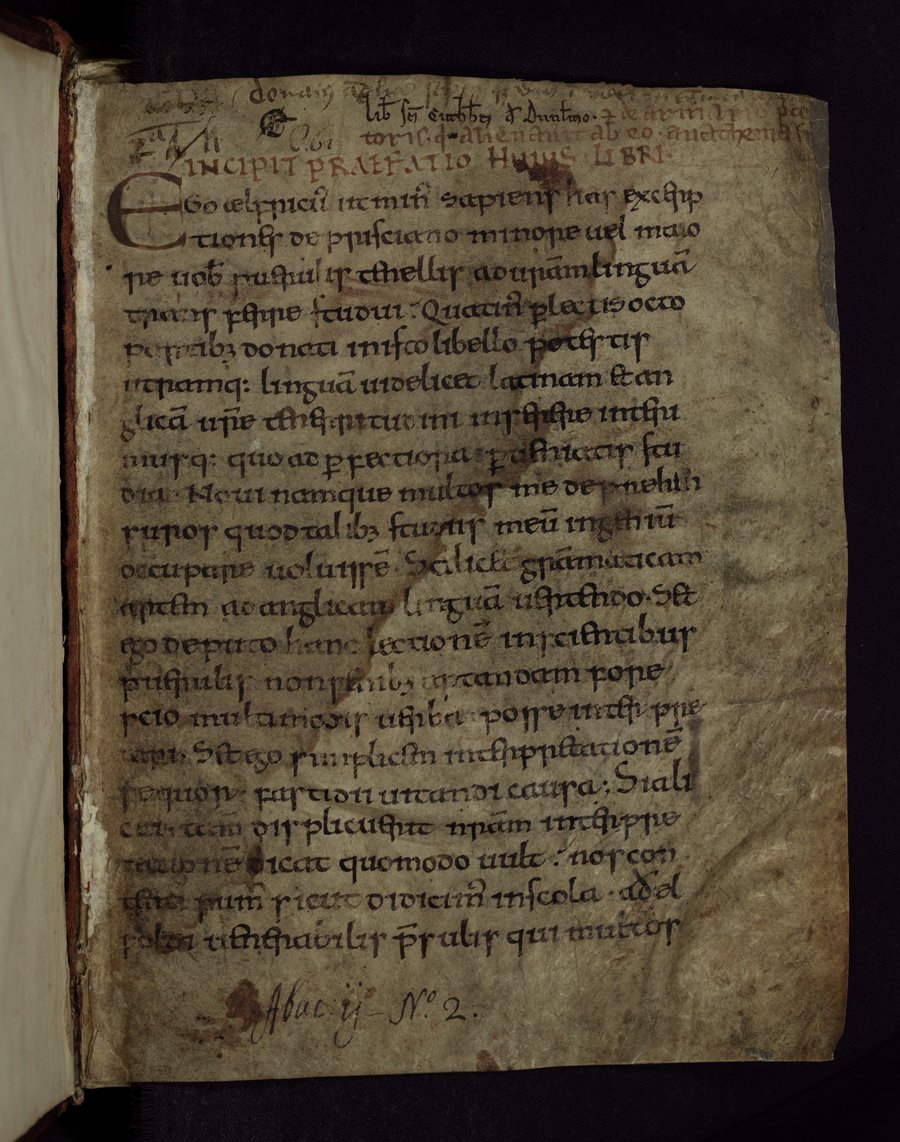 donatus
lib̄ sc̄i Cuthb̄ti de Dunelmo · ⁊ de armario p̄cen
toris · qⁱ alienaverit ab eo · anathema sit
INCIPIT PRAEFATIO HUIUS LIBRI ·
EGo ælfricū ut min᷑ sapiens has excerp
tiones de prisciano minore uel maio
re uob̄ puerulis tenellis ad ur̄am linguā
transferre studui · Quatin᷑ plectis octo
partibꝫ donati in isto libello potestis
utramq; linguā uidelicet latinam et an
glicā ur̄e teneritudini inserere interi
musq; quo ad perfectiora perueniatis stu
dia · Noui namque multos me deprehen
suros quod talibꝫ studiis meū ingeniū
occupare uoluissē · Scilicet gram̄aticam
artem ad anglicam linguā uertendo · Set
ego deputo hanc lectionē inscientibus
puerulis non senibꝫ aptandam fore
scio multimodis uerba posse interpre
tari · Set ego simplicem interpretationē
sequor fastidii uitandi causa ; Si ali
cui tam̄ displicuerit nr̄am interpre
tationē dicat quomodo uult · nos con
tenti sum᷑ sicut didicim᷑ in scola · adel
poldi uenerabilis p̄sulis qui multos
Abac ij – Nº. 2.